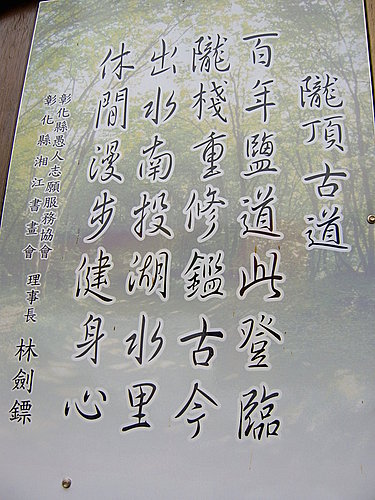 隴頂古道
百年鹽道此登臨
隴棧重修鑑古今
出水南投湖水里
休閒漫步健身心
彰化縣愚人志願服務協會
彰化縣湘江書畫會
理事長 林劍鏢